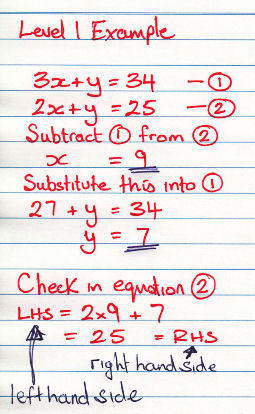 Level 1 Example
3x+y = 34 — ①
2x+y = 25 — ②
Subtract ① from ②
x = 9
Substitute this into ①
27 + y = 34
y = 7
Check in equation ②
LHS = 2×9 + 7
= 25 = RHS
right hand side
left hand side